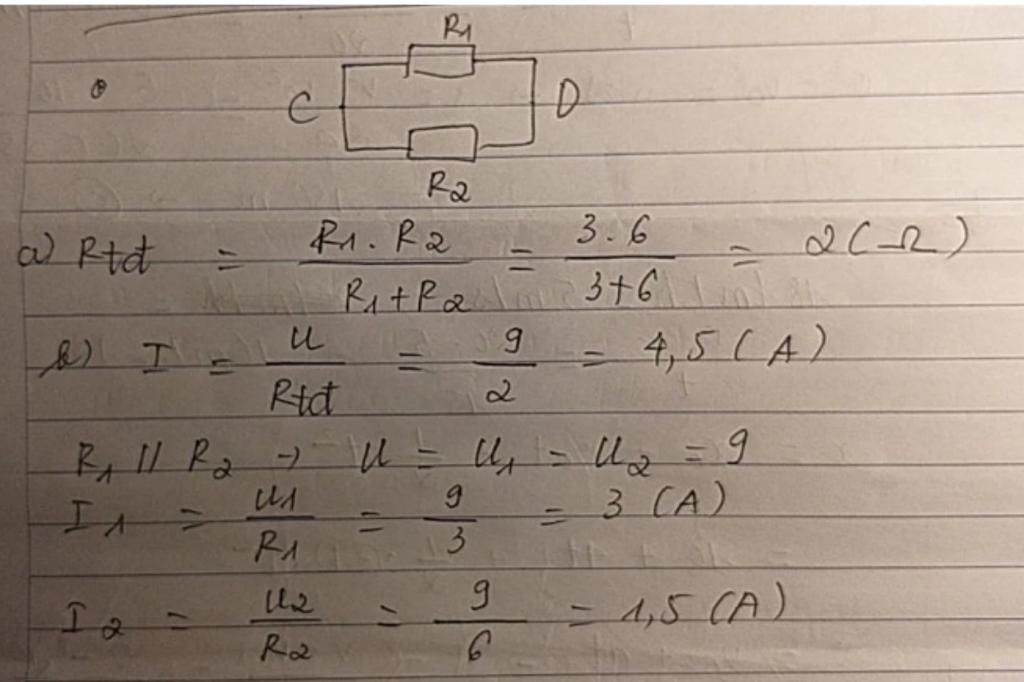 R1
C D
R2
a) Rtđ = R1 . R2 / R1 + R2 = 3 . 6 / 3 + 6 = 2 (Ω)
b) I = U / Rtđ = 9 / 2 = 4,5 (A)
R1 // R2 → U = U1 = U2 = 9
I1 = U1 / R1 = 9 / 3 = 3 (A)
I2 = U2 / R2 = 9 / 6 = 1,5 (A)